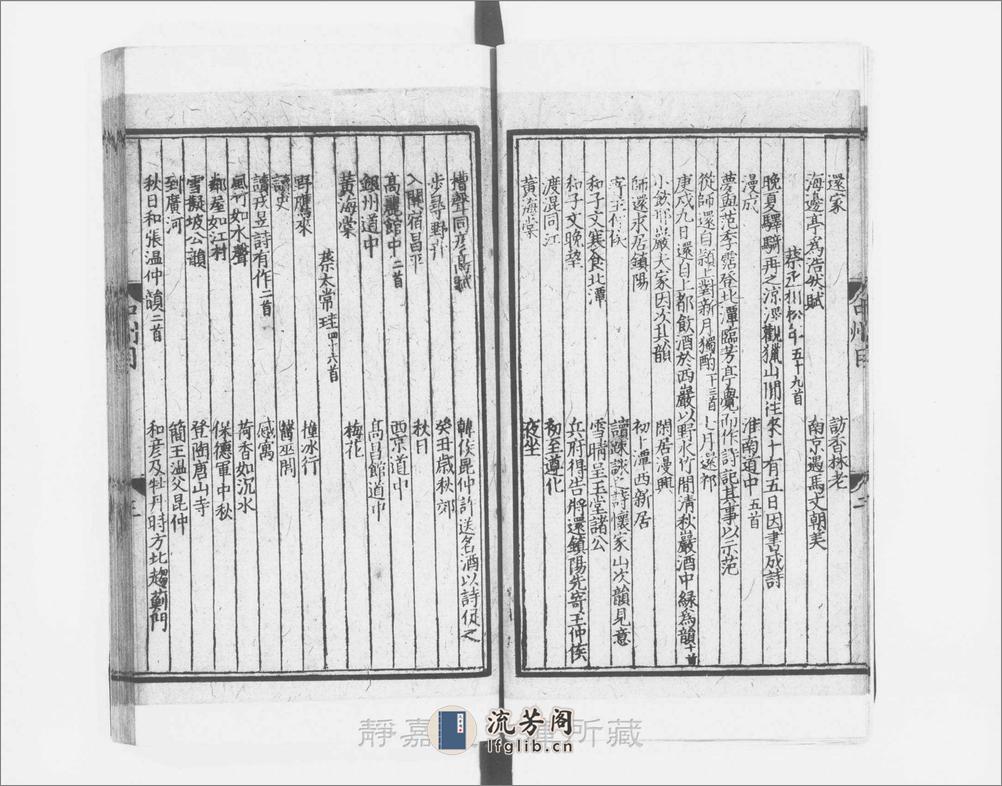 還家 訪香林老
海邊亭為浩然賦 南京遇馬丈朝美
蔡丞相松年五十九首
晚夏驛騎再之涼陘觀獵山間往來十有五日因書成詩
漫成 淮南道中五首
夢與范季霑登北潭臨芳亭覺而作詩記其事以示范
從師還自潁上對新月獨酌十三首 七月還祁
庚戌九日還自上都飲酒於西巖以野水竹間清秋巖酒中綠為韻十首
小飲邢嵓夫家因次其韻 閑居漫興
師還求居鎮陽 初卜潭西新居
讀踈詼之詩懷家山次韻見意
和子文寒食北潭 雪晴呈玉堂諸公
和子文晚望 兵府得告將還鎮陽先寄王仲侯
渡混同江 初至遵化
黃海棠 夜坐
槽聲同彥高賦 韓侯昆仲許送名酒以詩促之
步尋野卉 癸丑歲秋郊
入關宿昌平 秋日
高麗館中二首 西京道中
銀州道中 高昌館道中
黃海棠 梅花
蔡太常珪四十六首
野鷹來 撞冰行
讀史 醫巫閭
讀戎昱詩有作二首 感寓
風竹如水聲 荷香如沉水
鄰屋如江村 保德軍中秋
雪擬坡公韻 登陶唐山寺
到廣河 簡王溫父昆仲
秋日和張溫仲韻二首 和彥及牡丹時方北趨薊門
中州目
二
中州目
三
靜嘉 所藏
流芳阁
lfglib.cn